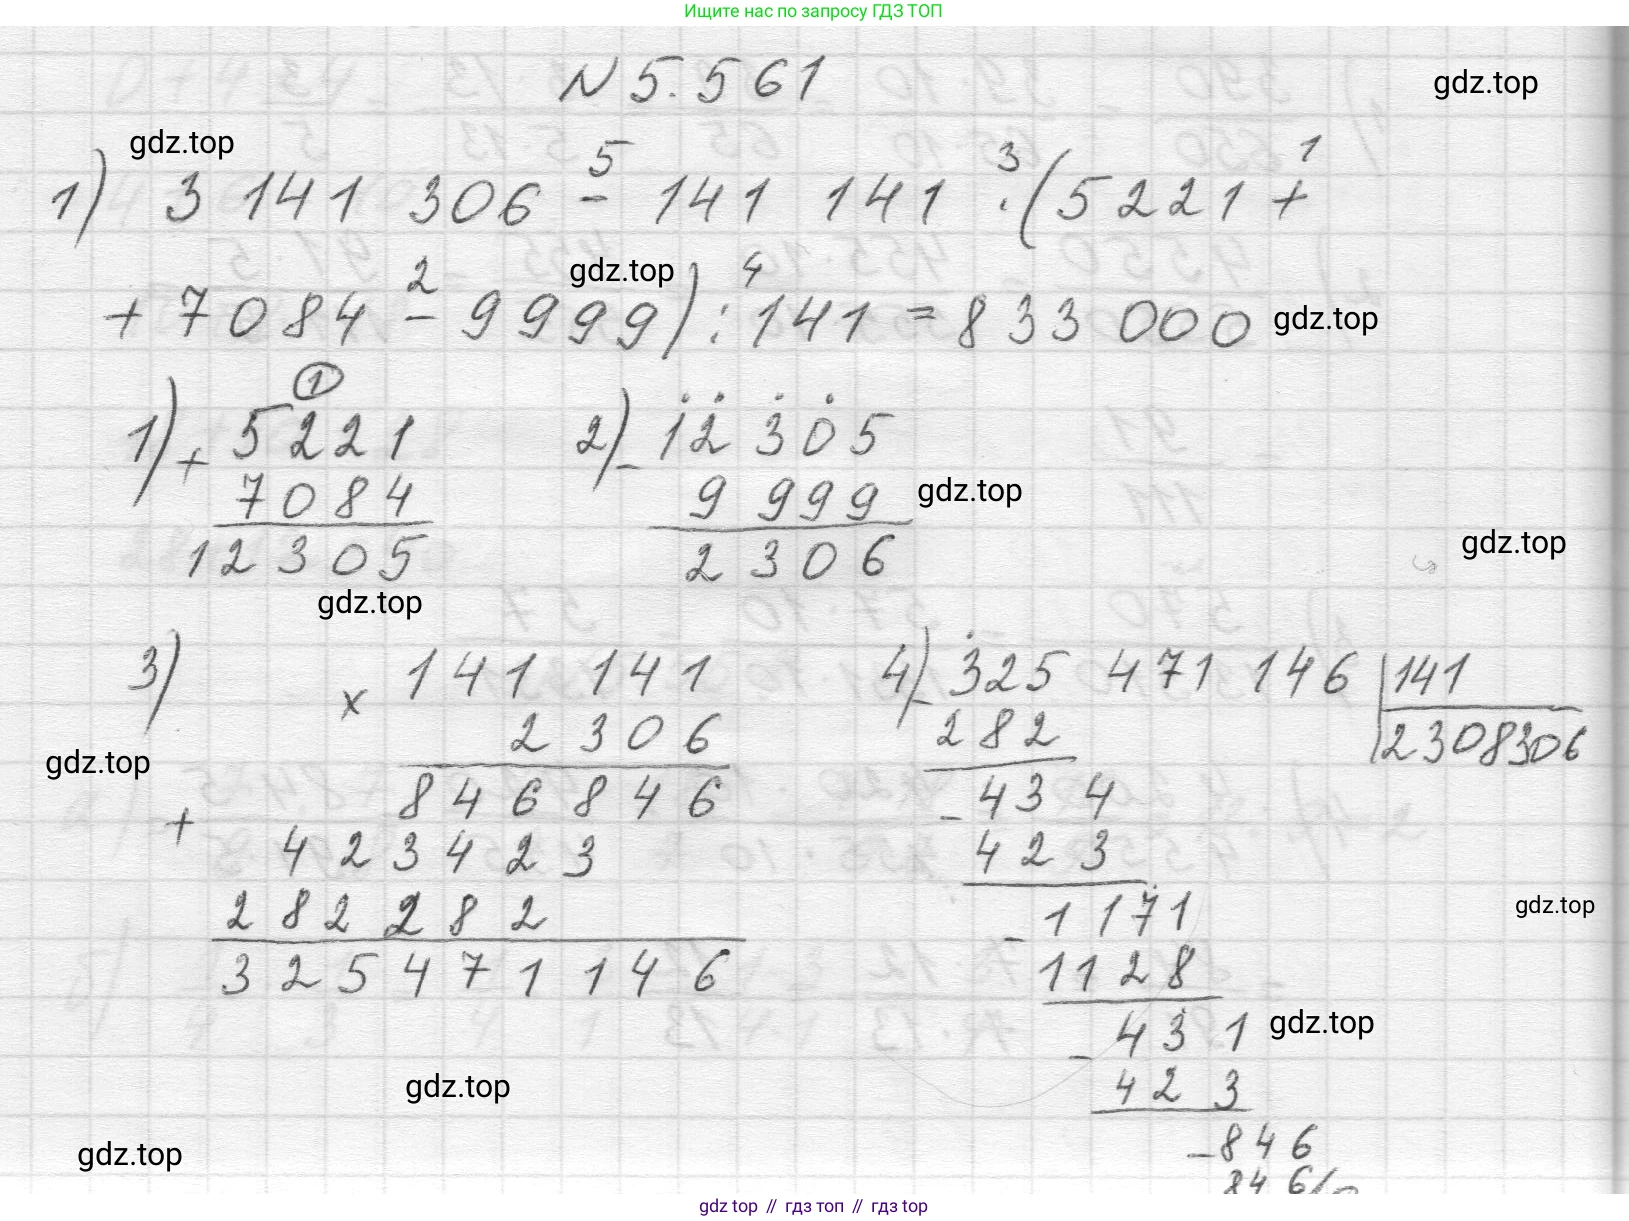 Ищите нас по запросу ГДЗ ТОП
N 5.561
gdz.top
gdz.top
5 3 1
1) 3 141 306 - 141 141 · (5221 +
2 gdz.top 4
+ 7084 - 9999) : 141 = 833 000 gdz.top
1
1) + 5221 2) - 12 305
7084 9 999 gdz.top
12305 2 306
gdz.top
gdz.top
3) × 141 141 4) - 325 471 146 | 141
2 306 282 2308306
gdz.top
846 846 - 434
+ 423 423 423
282 282 - 1171 gdz.top
325 471 146 1128
- 431 gdz.top
gdz.top 423
gdz.top - 846
846
gdz top // гдз топ // гдз top